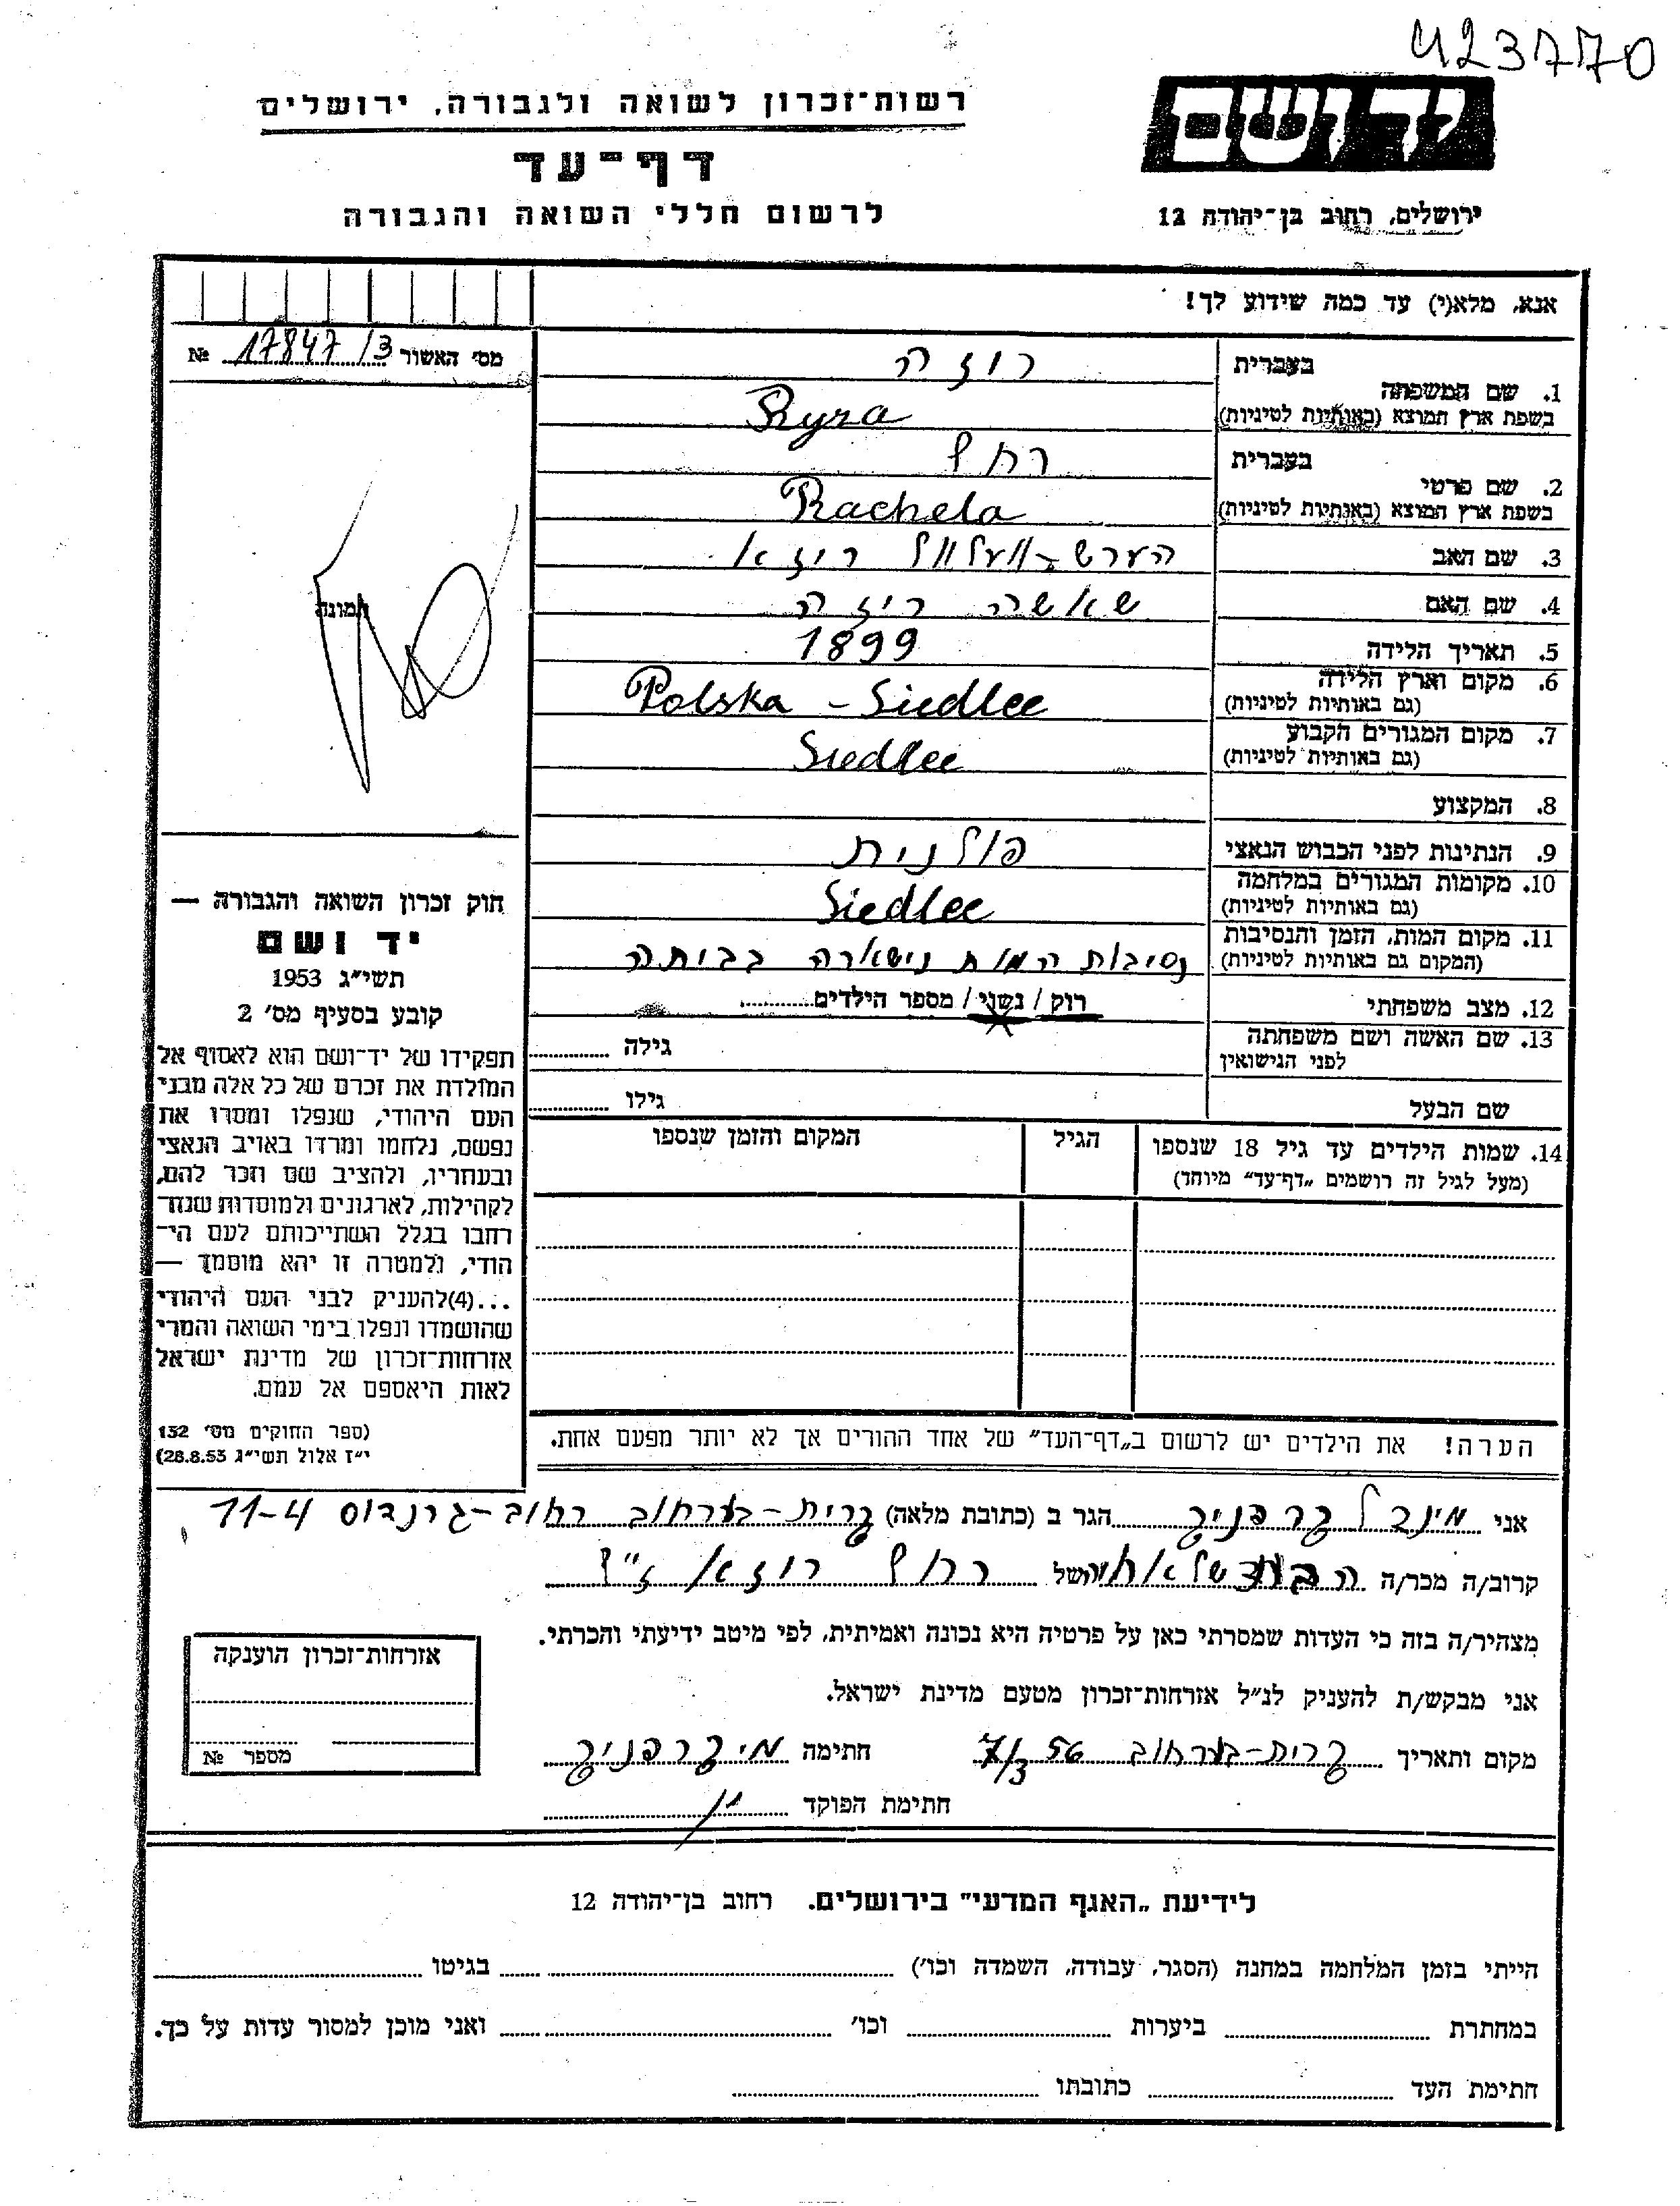 423770
רשות־זכרון לשואה ולגבורה, ירושלים
יד ושם
דף־עד
לרשום חללי השואה והגבורה
ירושלים, רחוב בן־יהודה 12
אנא, מלא(י) עד כמה שידוע לך!
מס׳ האשור 17847/3 №
תמונה
1. שם המשפחה
בעברית רוזה
בשפת ארץ המוצא (באותיות לטיניות) Ryza
2. שם פרטי
בעברית רחל
בשפת ארץ המוצא (באותיות לטיניות) Rachela
3. שם האב הערש-וועלוול ריזא
4. שם האם שאשה ריזה
5. תאריך הלידה 1899
6. מקום וארץ הלידה
(גם באותיות לטיניות) Polska - Siedlce
7. מקום המגורים הקבוע
(גם באותיות לטיניות) Siedlce
8. המקצוע
9. הנתינות לפני הכבוש הנאצי פולנית
10. מקומות המגורים במלחמה
(גם באותיות לטיניות) Siedlce
11. מקום המות, הזמן והנסיבות
(המקום גם באותיות לטיניות) נסיבות המות נישארה בביתה
12. מצב משפחתי רוק / נשוי / מספר הילדים
13. שם האשה ושם משפחתה
לפני הנישואין גילה
שם הבעל גילו
14. שמות הילדים עד גיל 18 שנספו
(מעל לגיל זה רושמים „דף־עד״ מיוחד)
הגיל
המקום והזמן שנספו
חוק זכרון השואה והגבורה —
יד ושם
תשי״ג 1953
קובע בסעיף מס׳ 2
תפקידו של יד־ושם הוא לאסוף אל
המולדת את זכרם של כל אלה מבני
העם היהודי, שנפלו ומסרו את
נפשם, נלחמו ומרדו באויב הנאצי
ובעוזריו, ולהציב שם וזכר להם,
לקהילות, לארגונים ולמוסדות שנח־
רבו בגלל השתייכותם לעם הי־
הודי, ולמטרה זו יהא מוסמך —
...(4)להעניק לבני העם היהודי
שהושמדו ונפלו בימי השואה והמרי
אזרחות־זכרון של מדינת ישראל
לאות היאספם אל עמם.
(ספר החוקים מס׳ 132
י״ז אלול תשי״ג 28.8.53)
הערה! את הילדים יש לרשום ב„דף־העד״ של אחד ההורים אך לא יותר מפעם אחת.
אני מינדל קרפניק הגר ב (כתובת מלאה) קרית-בערחוב רחוב-גרינדוס 11-4
קרוב/ה מכר/ה של רחל רוזא ז״ל
מצהיר/ה בזה כי העדות שמסרתי כאן על פרטיה היא נכונה ואמיתית, לפי מיטב ידיעתי והכרתי.
אני מבקש/ת להעניק לנ״ל אזרחות־זכרון מטעם מדינת ישראל.
מקום ותאריך קרית-בערחוב 7/3 56 חתימה מי קרפניק
חתימת הפוקד
אזרחות־זכרון הוענקה
מספר №
לידיעת „האגף המדעי״ בירושלים. רחוב בן־יהודה 12
הייתי בזמן המלחמה במחנה (הסגר, עבודה, השמדה וכו׳) בגיטו
במחתרת ביערות וכו׳ ואני מוכן למסור עדות על כך.
חתימת העד כתובתו